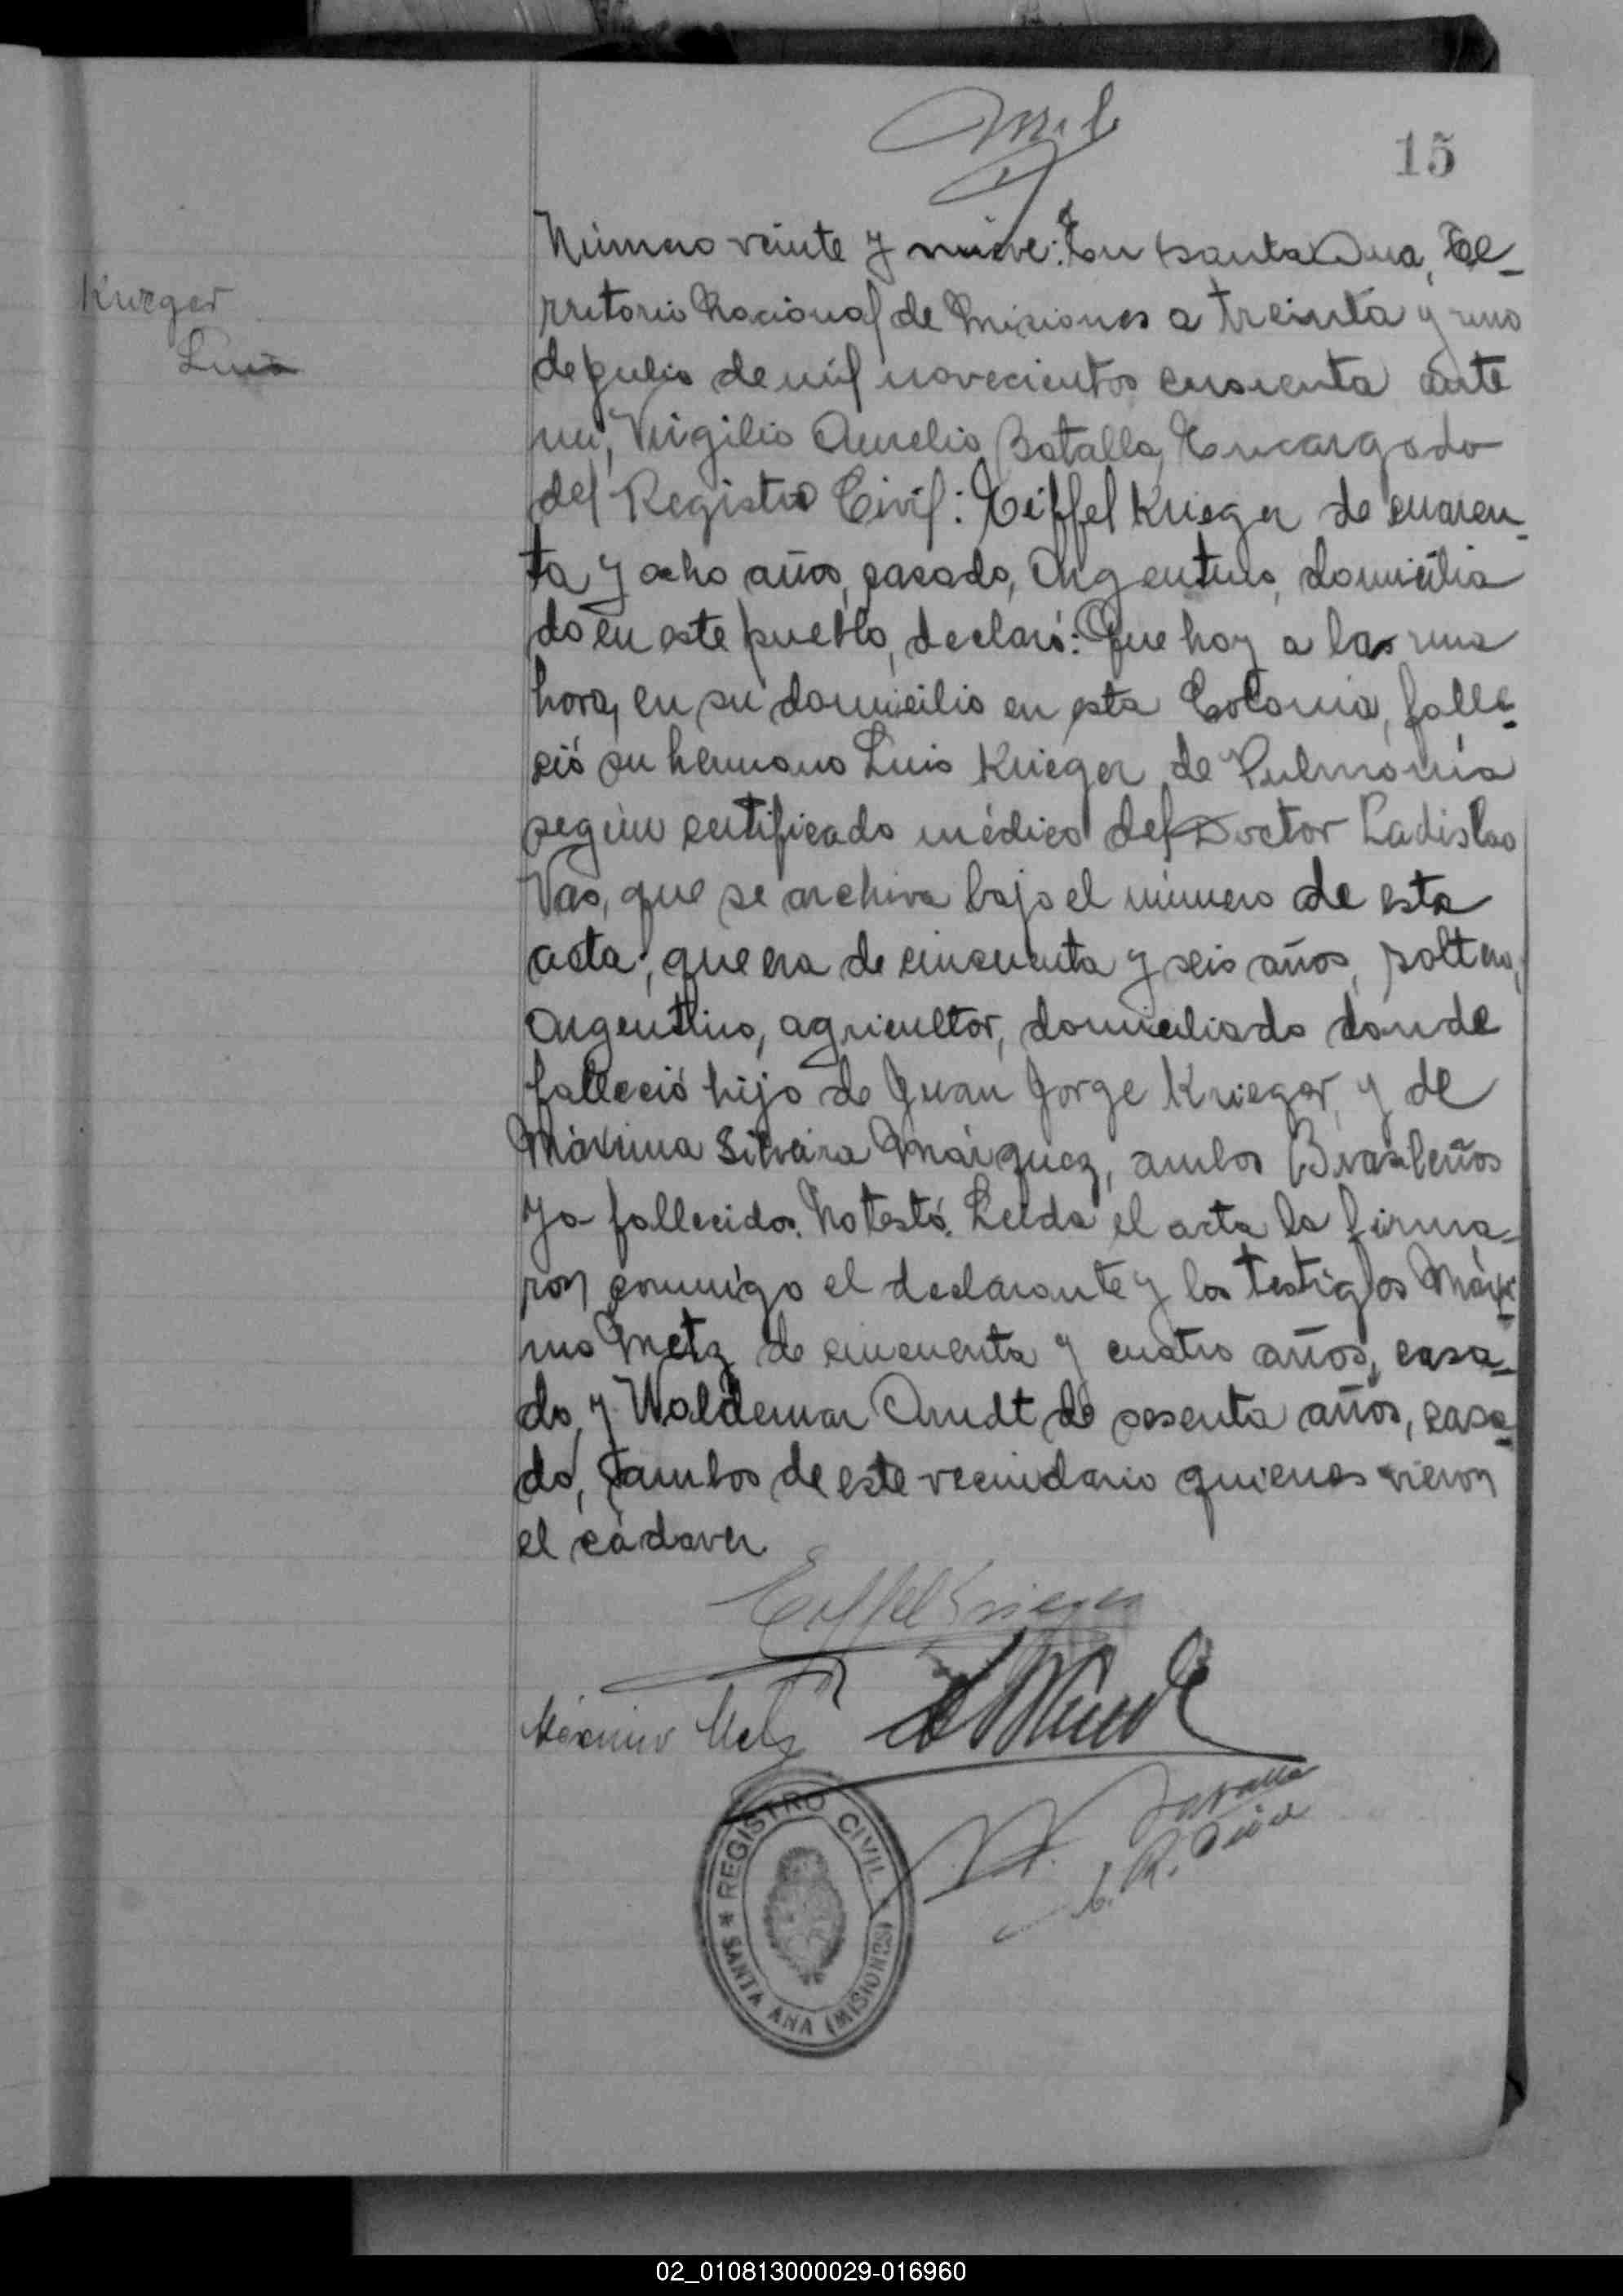 15
Número veinte y nueve: En Santa Ana, Te-
Krieger
Luis
rritorio Nacional de Misiones a treinta y uno
de Julio de mil novecientos cuarenta ante
mi, Virgilio Aurelio Batalla, Encargado
del Registro Civil: Eiffel Krieger de cuaren-
ta y ocho años, casado, Argentino, domicilia
do en este pueblo, declaró: Que hoy a las una
hora, en su domicilio en esta Colonia, falle-
ció su hermano Luis Krieger de Pulmonía
según certificado médico del Doctor Ladislao
que se archiva bajo el número de esta
acta, que era de cincuenta y seis años, soltero,
Argentino, agricultor, domiciliado donde
falleció hijo de Juan Jorge Krieger, y de
Máxima Silveira Márquez, ambos Brasileños
ya fallecidos. No testó. Leída el acta la firma-
ron conmigo el declarante y los testigos Máxi-
mo Metz de cincuenta y cuatro años, casa-
do, y Waldemar Arndt de sesenta años, casa-
do, ambos de este vecindario quienes vieron
el cádaver
Eiffel Krieger
Máximo Metz
REGISTRO CIVIL
* SANTA ANA (MISIONES)
02_010813000029-016960